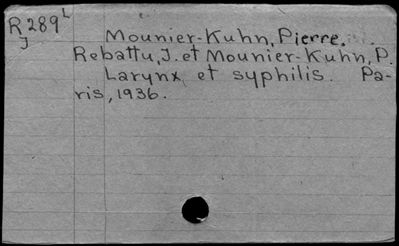 R289L
J
Mounier-Kuhn, Pierre.
Rebattu, J. et Mounier-Kuhn, P.
Larynx et syphilis. Pa-
ris, 1936.